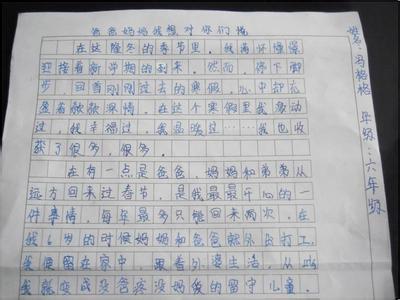 爸爸妈妈我想对你们说
在这隆冬的季节里，我满怀憧憬
迎接着新学期的到来，然而，停下脚
步，回首刚刚过去的寒假，心中却充
盈着脉脉深情。在这个寒假里我感动
过，我幸福过，我品尝过……我也收
获了很多，很多。
在有一点是爸爸，妈妈和弟弟从
远方回来过春节，是我最最开心的一
件事情，每年最多只能回来两次，在
我6岁的时候妈妈和爸爸就外出打工，
我便留在家中，跟着外婆生活，从此
我就变成没爸疼没妈爱的留守儿童。
姓名：冯格格 年级：六年级